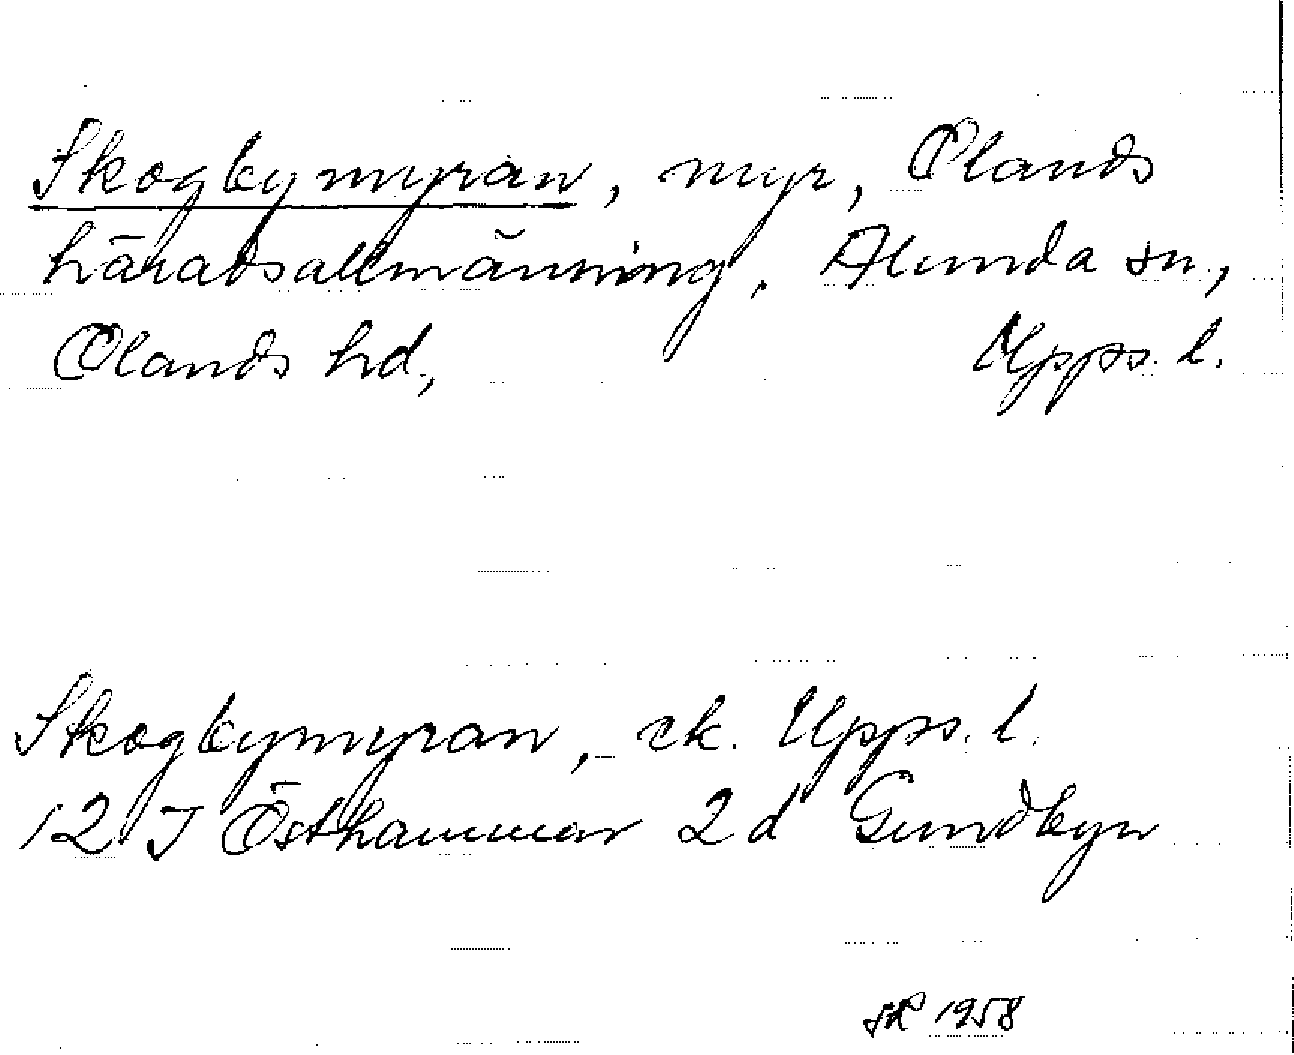 Skogbymyran, myr, Olands
häradsallmänning, Alunda sn.,
Olands hd,   Upps. l.
Skogbymyran, ek. Upps. l.
12 I Östhammar 2 d Gundbyn
1958